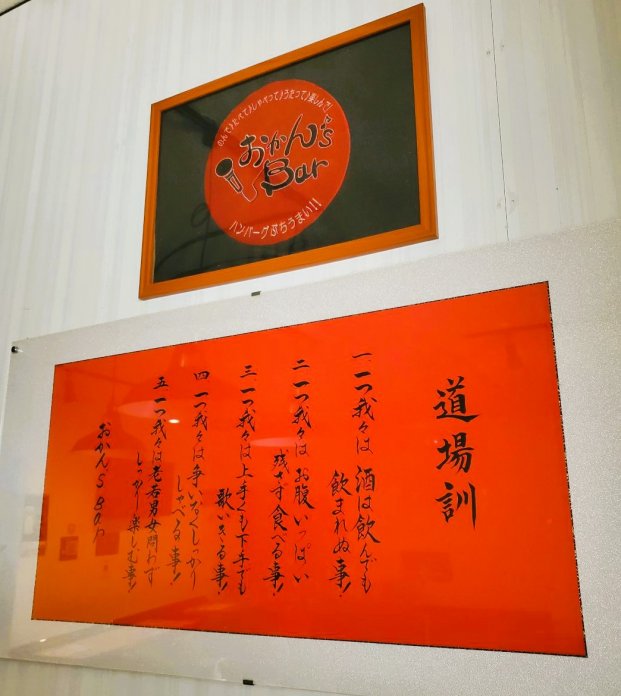 のんで♪たべて♪しゃべって♪うたって♪楽しんで!
おかん's
Bar
ハンバーグぶちうまい!!
道場訓
一 一つ我々は 酒は飲んでも
飲まれぬ事!
二 一つ我々は お腹いっぱい
残さず食べる事!
三 一つ我々は上手くも下手でも
歌いきる事!
四 一つ我々は争いなくしっかり
しゃべる事!
五 一つ我々は老若男女問わず
しっかり楽しむ事!
おかんS Bar